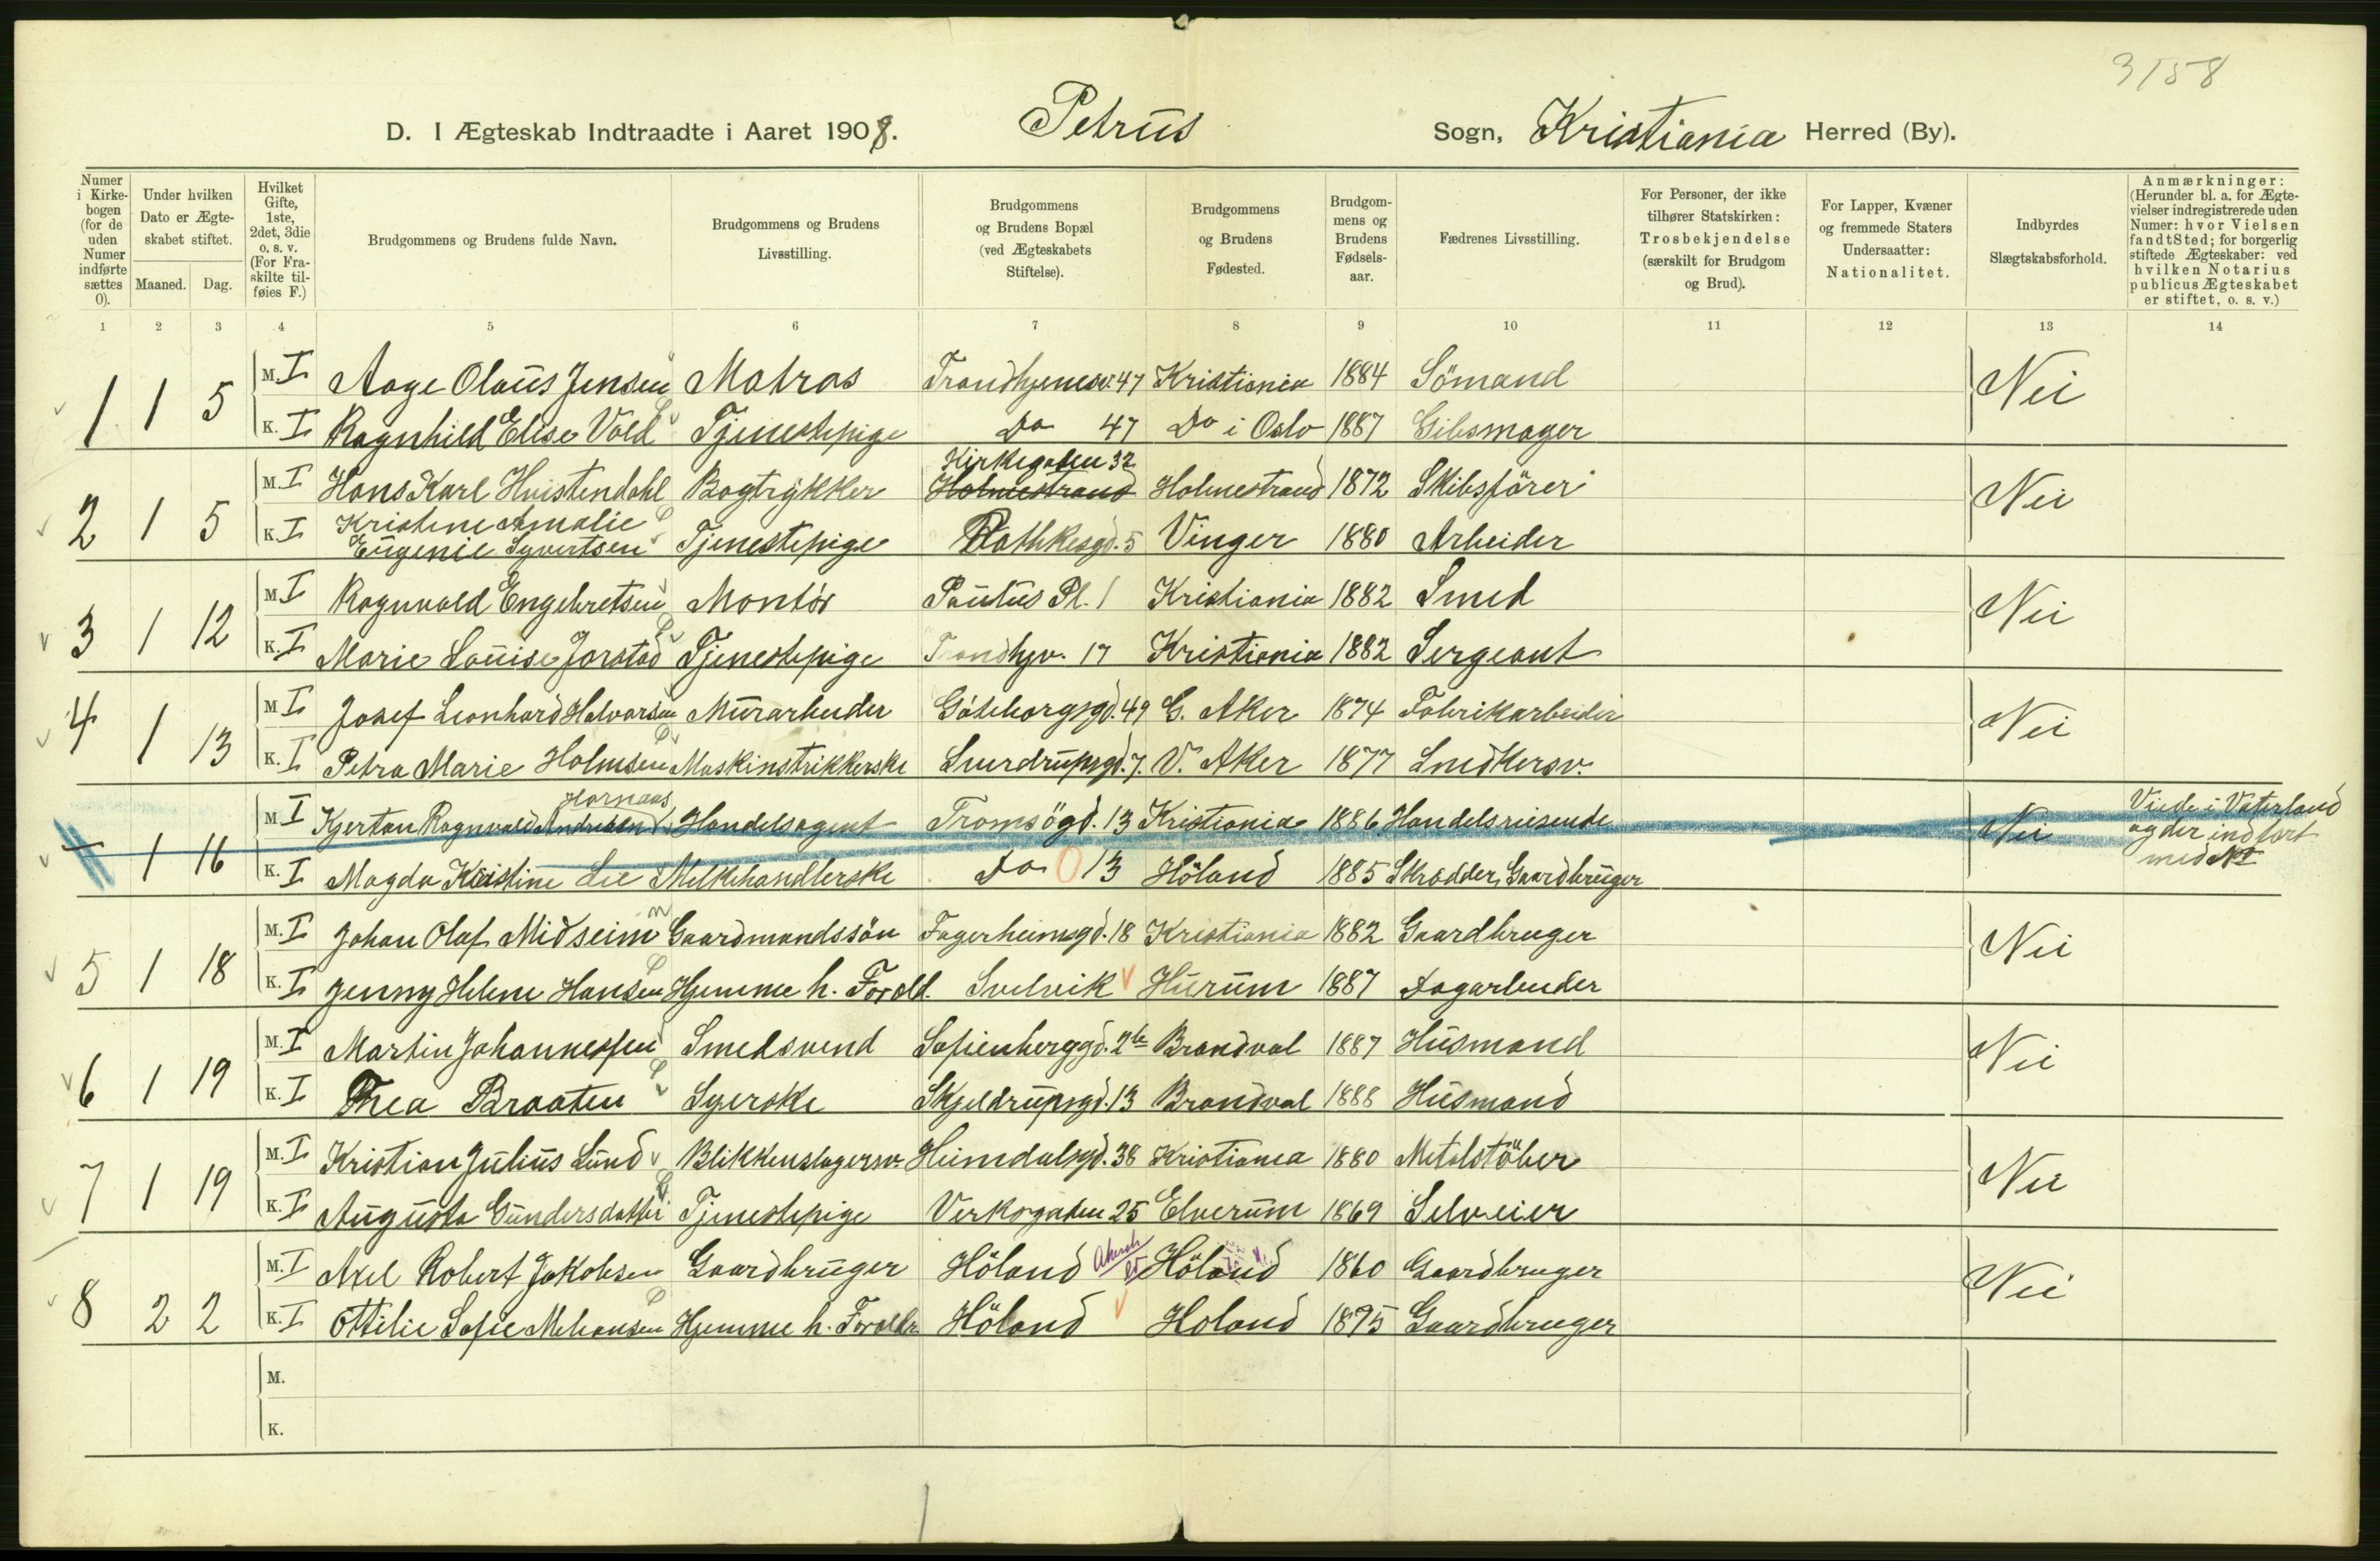 3158
D. I Ægteskab Indtraadte i Aaret 1908. Petrus Sogn, Kristiania Herred (By).
Numer i Kirkebogen (for de uden Numer indførte sættes 0).
Under hvilken Dato er Ægteskabet stiftet.
Maaned. Dag.
Hvilket Gifte, 1ste, 2det, 3die o. s. v. (For Fraskilte tilføies F.)
Brudgommens og Brudens fulde Navn.
Brudgommens og Brudens Livsstilling.
Brudgommens og Brudens Bopæl (ved Ægteskabets Stiftelse).
Brudgommens og Brudens Fødested.
Brudgommens og Brudens Fødselsaar.
Fædrenes Livsstilling.
For Personer, der ikke tilhører Statskirken: Trosbekjendelse (særskilt for Brudgom og Brud).
For Lapper, Kvæner og fremmede Staters Undersaatter: Nationalitet.
Indbyrdes Slægtskabsforhold.
Anmærkninger: (Herunder bl. a. for Ægtevielser indregistrerede uden Numer: hvor Vielsen fandt Sted; for borgerlig stiftede Ægteskaber: ved hvilken Notarius publicus Ægteskabet er stiftet, o. s. v.)
1 2 3 4 5 6 7 8 9 10 11 12 13 14
1 1 5 M. I Aage Olaus Jensen Matros Trondhjemsv. 47 Kristiania 1884 Sömand Nei
K. I Ragnhild Elise Vold Tjenestepige Do 47 Do i Oslo 1887 Gibsmager
Kirkegaten 32
2 1 5 M. I Hans Karl Hvistendahl Bogtrykker Holmestrand Holmestrand 1872 Skibsförer Nei
K. I Kristine Amalie
Eugenie Syvertsen Tjenestepige Rathkesgd. 5 Vinger 1880 Arbeider
3 1 12 M. I Ragnvald Engebretsen Montör Paulus Pl. 1 Kristiania 1882 Smed Nei
K. I Marie Louise Jorstad Tjenestepige Trondhjv. 17 Kristiania 1882 Sergeant
4 1 13 M. I Josef Leonhard Halvorsen Murarbeider Göteborgsgd. 49 G. Aker 1874 Fabrikarbeider Nei
K. I Petra Marie Holmsen Maskinstrikkerske Sverdrupsgd. 7. V. Aker 1877 Snedkersv.
Hornaas
1 16 M. I Kjertan Ragnvald Andresen Handelsagent Tromsögd. 13 Kristiania 1886 Handelsreisende Nei Viede i Vaterland
og der indfört
med No 1
K. I Magda Kristine Lie Melkehandlerske Do 13 Höland 1885 Skrædder, Gaardbruger
5 1 18 M. I Johan Olaf Midseim Gaardmandssön Fagerheimsgd. 18 Kristiania 1882 Gaardbruger Nei
K. I Jenny Helene Hansen Hjemme h. Foræld. Svelvik Hurum 1887 Dagarbeider
6 1 19 M. I Martin Johannessen Smedsvend Sofienberggd. 2b Brandval 1887 Husmand Nei
K. I Thea Braaten Syerske Skjeldrupsgd. 13 Brandval 1888 Husmand
7 1 19 M. I Kristian Julius Lund Blikkenslagersv. Heimdalsgd. 38 Kristiania 1880 Metalstöber Nei
K. I Augusta Gundersdatter Tjenestepige Verksgaten 25 Elverum 1869 Selveier
8 2 2 M. I Axel Robert Jakobsen Gaardbruger Höland Höland 1860 Gaardbruger Nei
K. I Ottilie Sofie Mehansen Hjemme h. Forældr. Höland Holand 1875 Gaardbruger
M.
K.